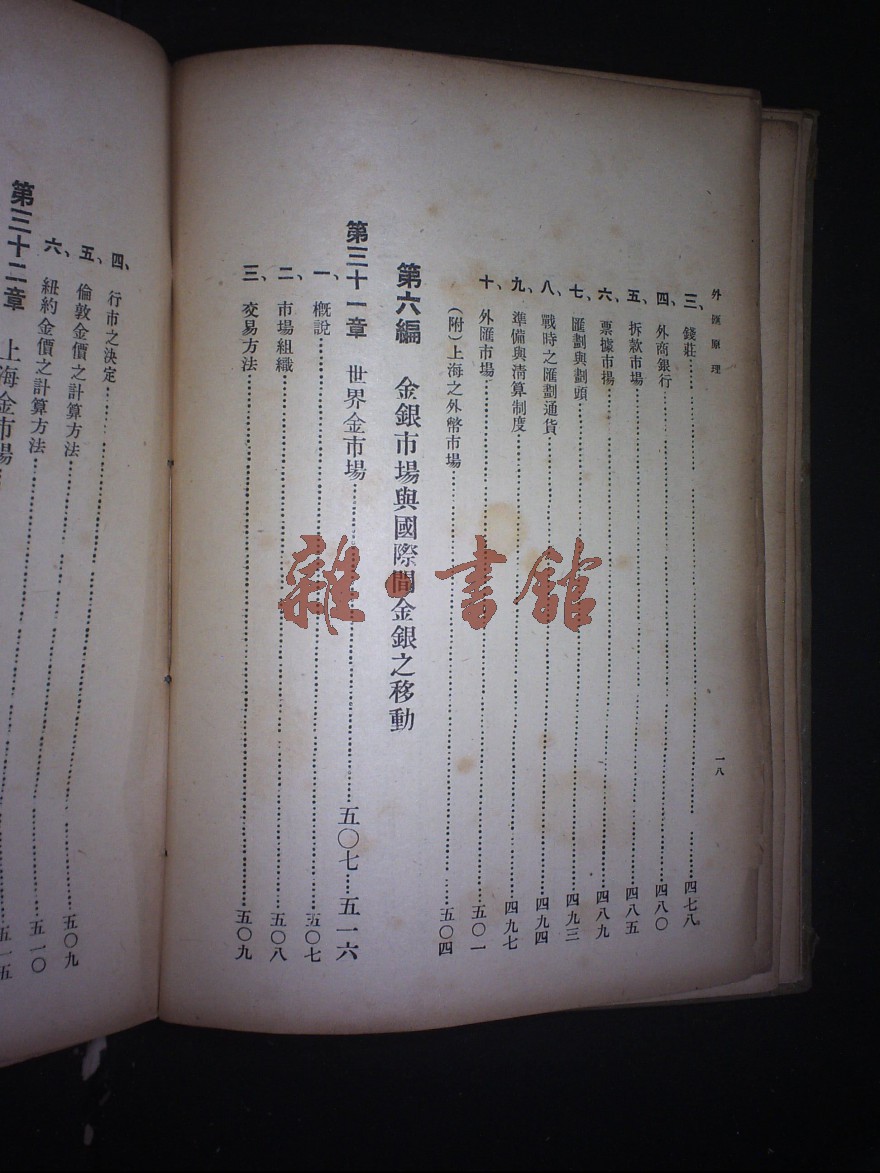 外匯原理
一八
三、錢莊……四七八
四、外商銀行……四八〇
五、拆款市場……四八五
六、票據市場……四八九
七、匯劃與劃頭……四九三
八、戰時之匯劃通貨……四九四
九、準備與清算制度……四九七
十、外匯市場……五〇一
(附)上海之外幣市場……五〇四
第六編 金銀市場與國際間金銀之移動
第三十一章 世界金市場……五〇七—五一六
一、概說……五〇七
二、市場組織……五〇八
三、交易方法……五〇九
四、行市之決定……五〇九
五、倫敦金價之計算方法……五〇九
六、紐約金價之計算方法……五一〇
第三十二章 上海金市場
雜·書館